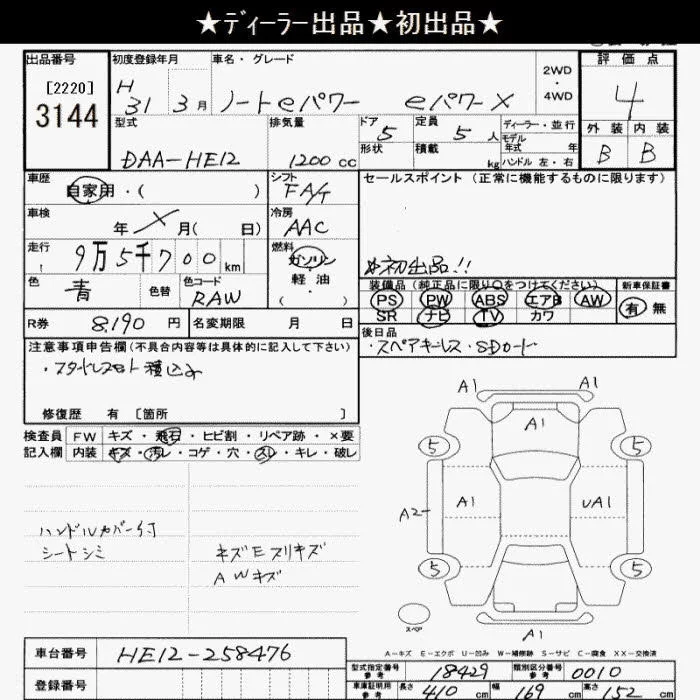 ★ディーラー出品★初出品★
出品番号
[2220]
3144
初度登録年月
H 31 3 月
車名・グレード
ノートeパワー eパワーX
2WD
・
4WD
評価点
4
外装 内装
B B
型式
DAA-HE12
排気量
1200 cc
ドア 5
形状
定員 5 人
積載 kg
ディーラー・並行
モデル
年式 年
ハンドル 左・右
車歴
自家用・( )
シフト
FAT
セールスポイント(正常に機能するものに限ります)
車検
年 × 月( 日)
冷房
AAC
走行
9万5千700 km
燃料
ガソリン
軽油
・( )
☆初出品!!
色
青
色替
色コード
RAW
装備品(純正品に限り○をつけてください)
PS PW ABS エアB AW
SR ナビ TV カワ
新車保証書
有 無
R券 8,190 円
名変期限 月 日
後日品
・スペアキーレス・SDカード
注意事項申告欄(不具合内容等は具体的に記入して下さい)
・スタッドレスセット積込み
修復歴 有 [箇所 ]
検査員
記入欄
FW キズ・飛石・ヒビ割・リペア跡・×要
内装 キズ・汚レ・コゲ・穴・スレ・キレ・破レ
ハンドルカバー付
シートシミ
キズEスリキズ
AWキズ
A1 A1
A1
5 5
A2 A1 UA1
5 5
スペア
A1
A-キズ E-エクボ U-凹み W-補修跡 S-サビ C-腐食 XX-交換済
車台番号 HE12-258476
登録番号
型式指定番号
参考
18429
類別区分番号
参考
0010
車庫証明用
参考
長さ 410 cm 幅 169 cm 高さ 152 cm